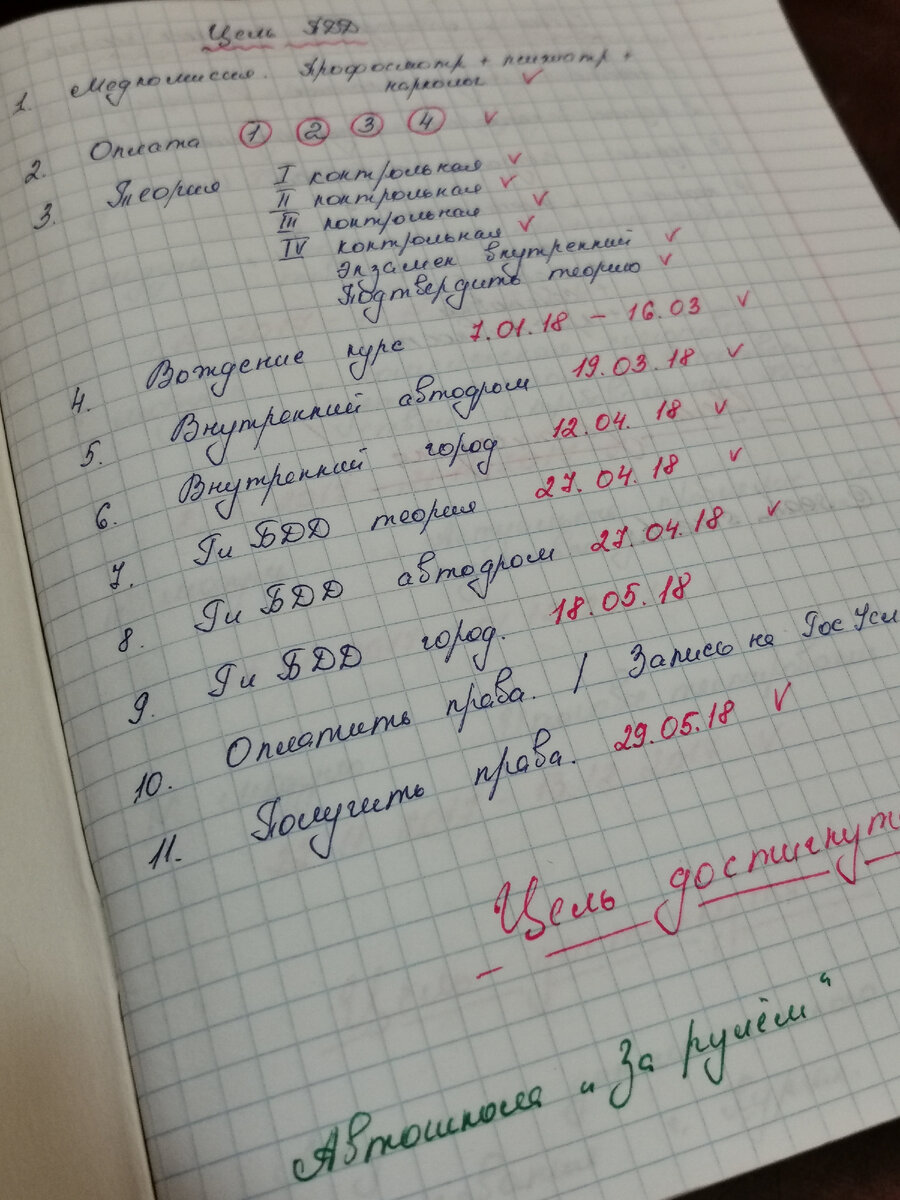 Цель ПДД
1. Медкомиссия. Профосмотр + психотр +
нарколог ✓
2. Оплата ① ② ③ ④ ✓
3. Теория I контрольная ✓
II контрольная ✓
III контрольная ✓
IV контрольная ✓
Экзамен внутренний ✓
Подтвердить теорию ✓
4. Вождение курс 7.01.18 – 16.03 ✓
5. Внутренний автодром 19.03.18 ✓
6. Внутренний город 12.04.18 ✓
7. Ги БДД теория 27.04.18 ✓
8. Ги БДД автодром 27.04.18 ✓
9. Ги БДД город. 18.05.18
10. Оплатить права. / Запись на Гос Усл
11. Получить права. 29.05.18 ✓
Цель достигнут
Автошкола „За рулём“